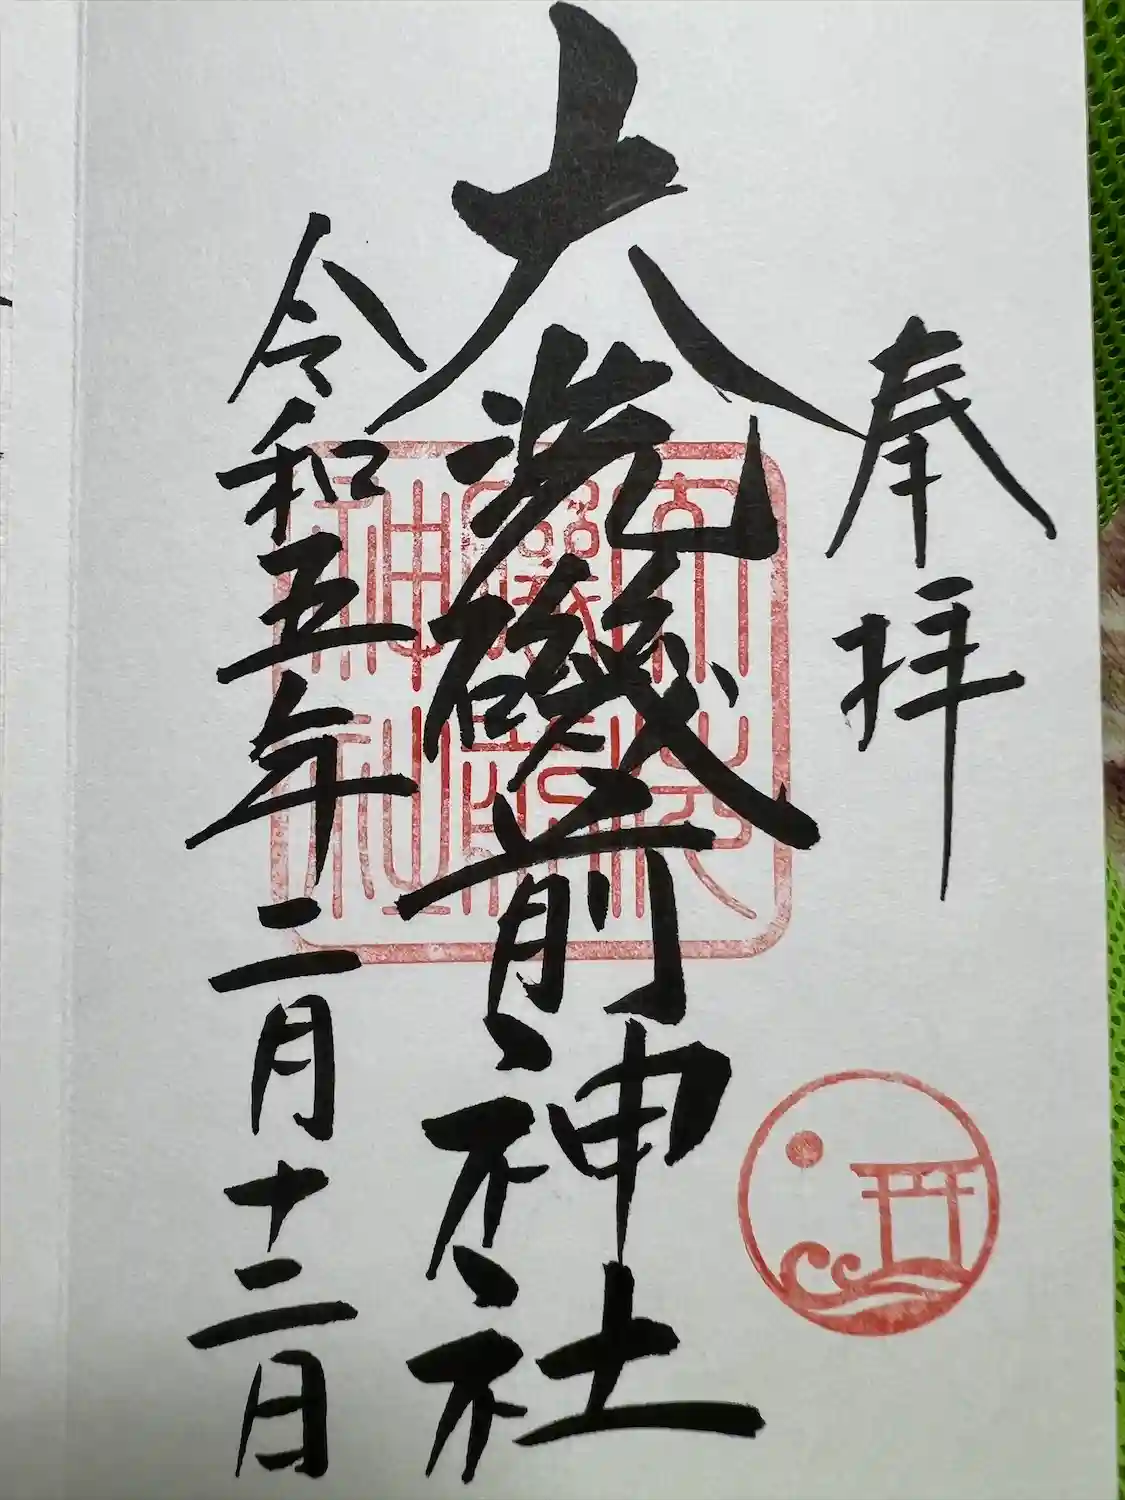 奉拝
大洗磯前神社
令和五年二月十二日
大洗磯前神社